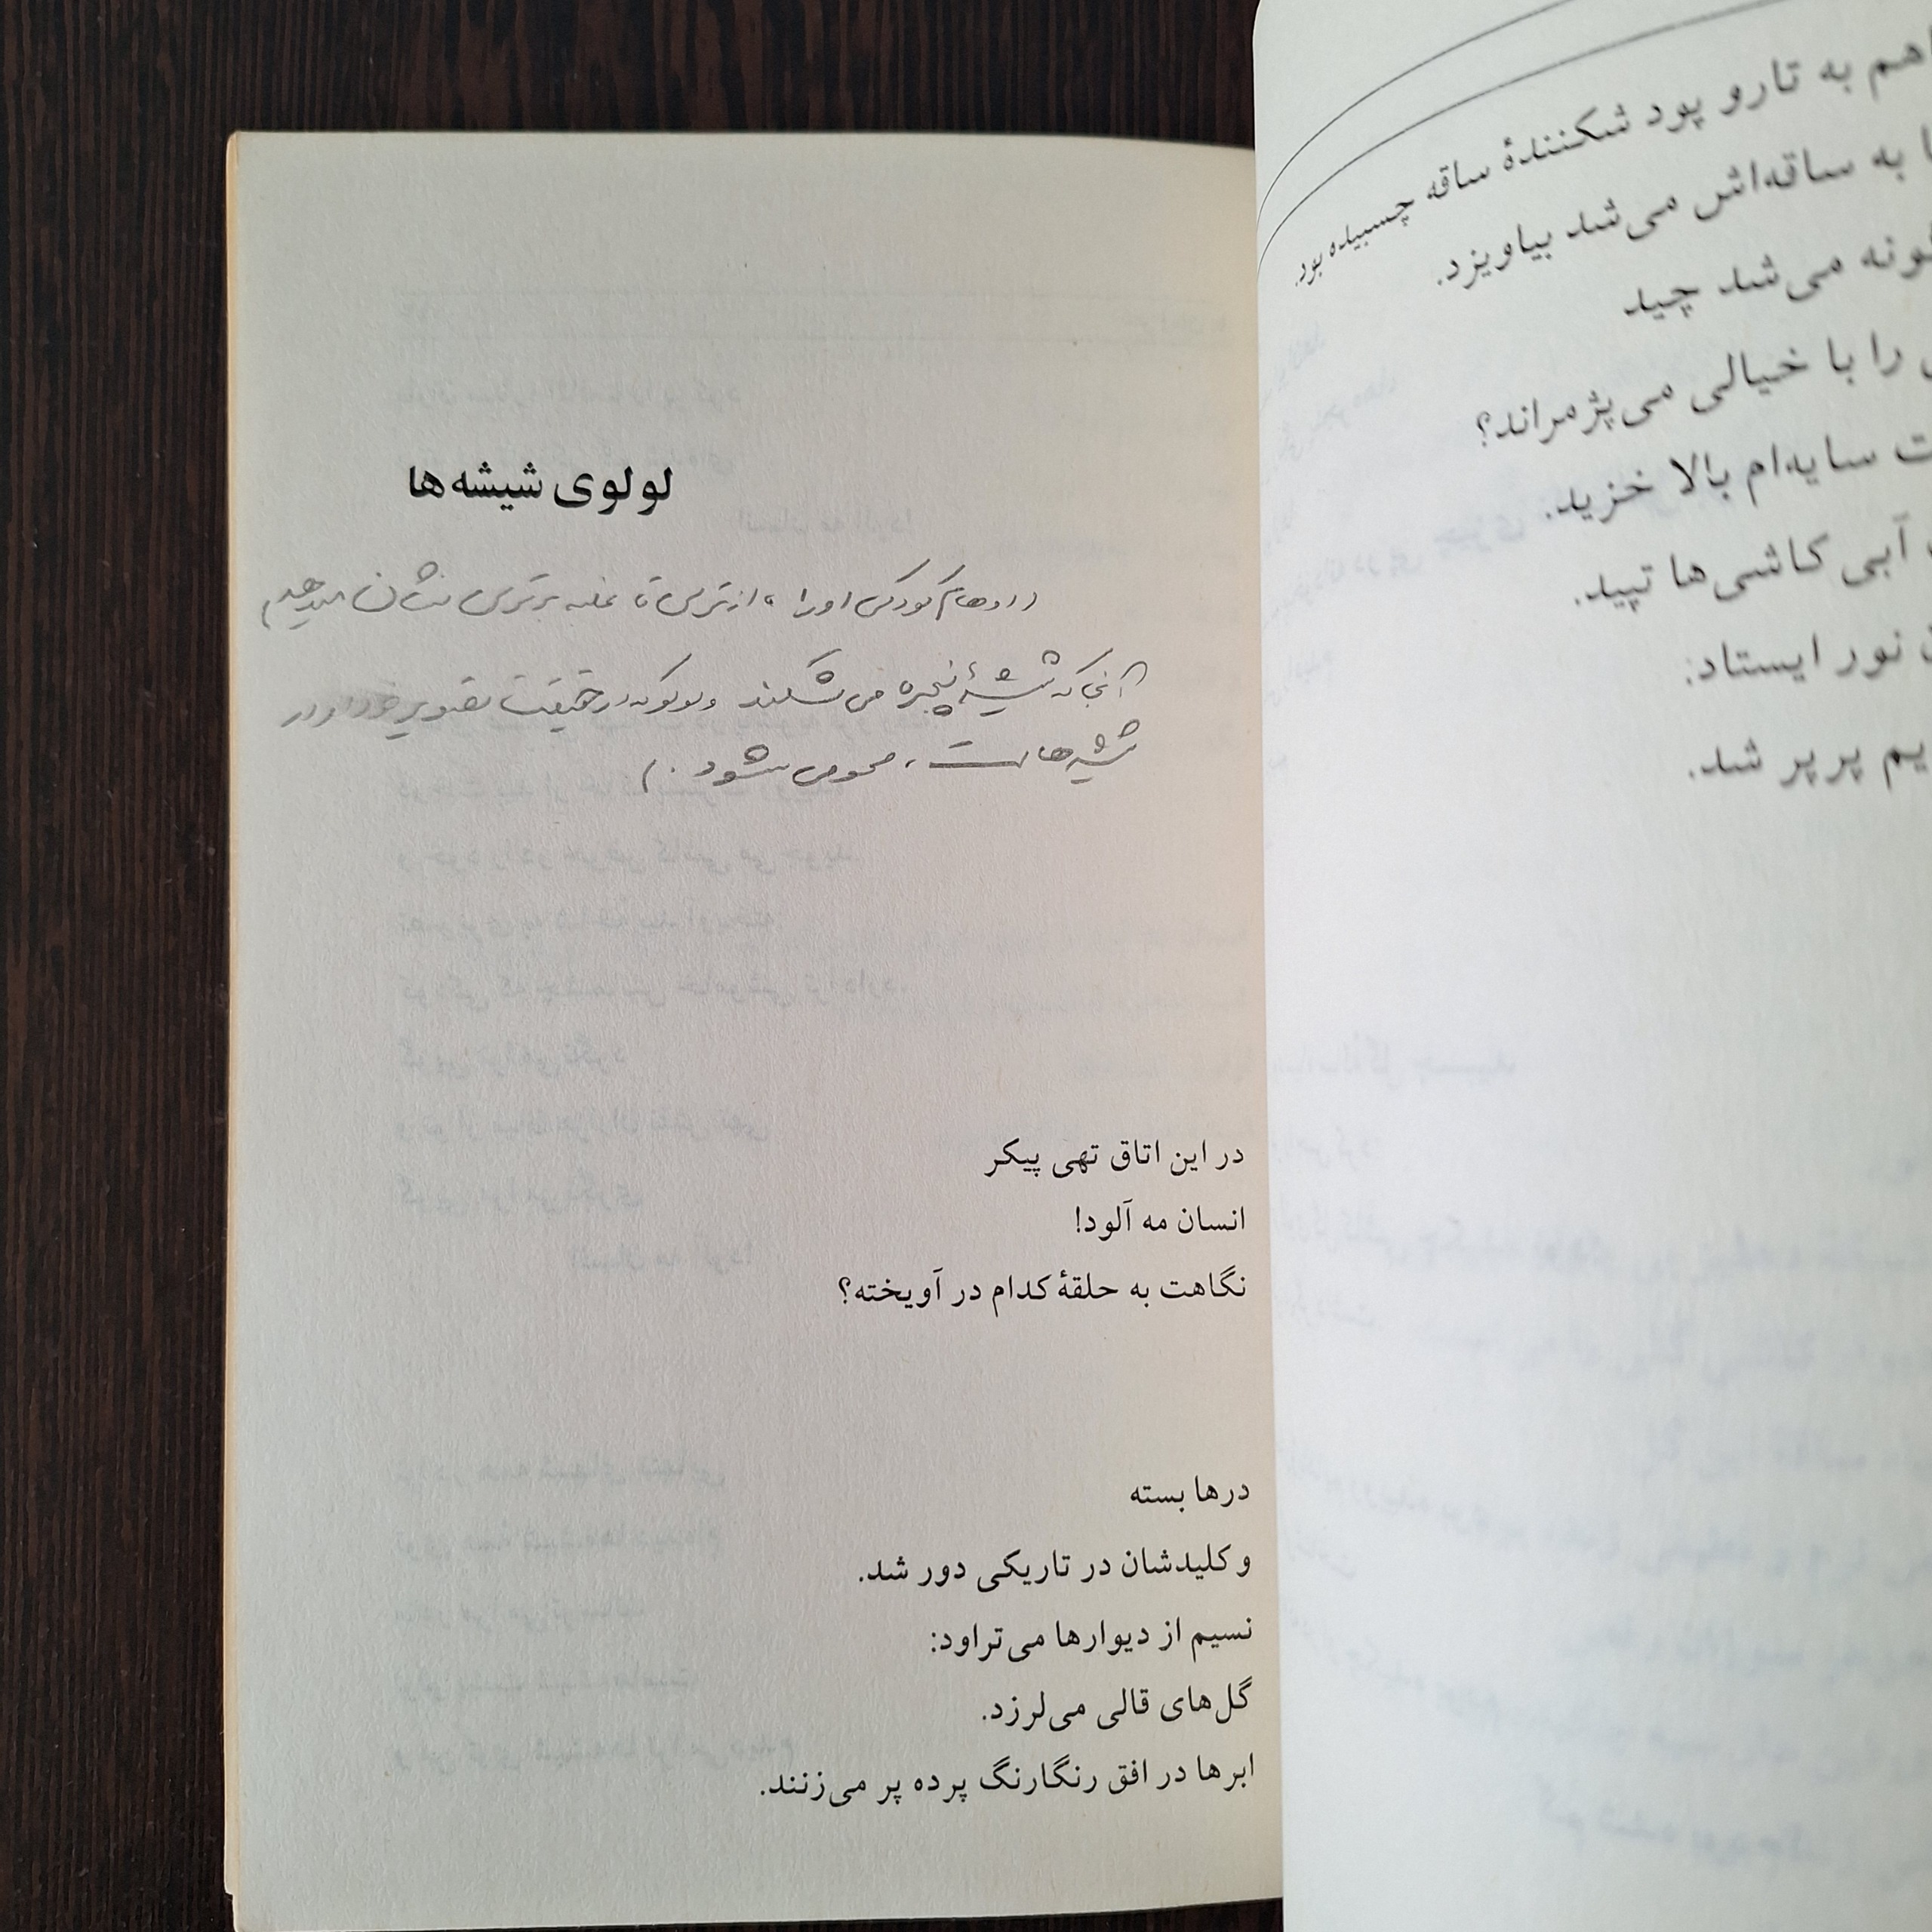 اهم به تارو پود شکنندهٔ ساقه چسبیده بود.
به ساقه‌اش می‌شد بیاویزد.
گونه می‌شد چید
را با خیالی می‌پژمراند؟
ت سایه‌ام بالا خزید.
آبی کاشی‌ها تپید.
نور ایستاد:
یم پرپر شد.
لولوی شیشه‌ها
کودکی او را، از ترس تا غلبه بر ترس نشان میدهد
آنجا که شیشهٔ پنجره می‌شکند و لولو که در حقیقت تصویر خود او در
شیشه‌هاست، محو می‌شود.)
در این اتاق تهی پیکر
انسان مه آلود!
نگاهت به حلقهٔ کدام در آویخته؟
درها بسته
و کلیدشان در تاریکی دور شد.
نسیم از دیوارها می‌تراود:
گل‌های قالی می‌لرزد.
ابرها در افق رنگارنگ پرده پر می‌زنند.